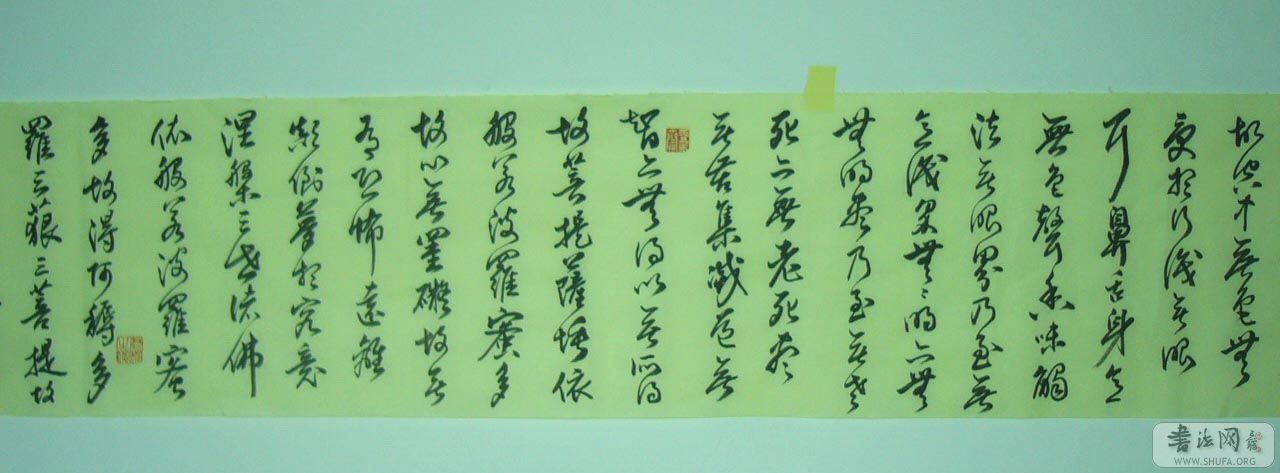 故空中無色無
受想行識無眼
耳鼻舌身意
無色聲香味觸
法無眼界乃至無
意識界無〻明亦無
無明盡乃至無老
死亦無老死盡
無苦集滅道無
智亦無得以無所得
故菩提薩埵依
般若波羅蜜多
故心無罣礙故無
有恐怖遠離
顛倒夢想究竟
涅槃三世諸佛
依般若波羅蜜
多故得阿耨多
羅三藐三菩提故
書法网
WWW.SHUFA.ORG